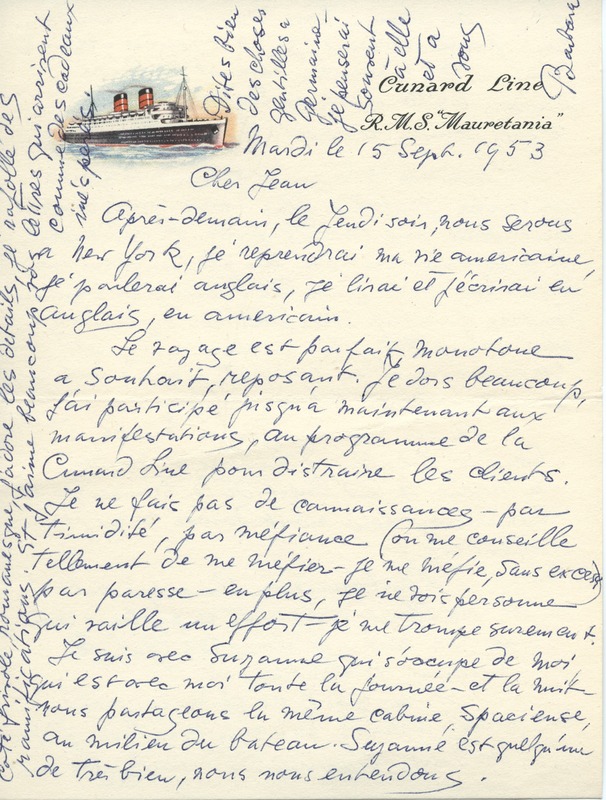 Cunard Line
R.M.S. "Mauretania"
Mardi le 15 Sept. 1953
Cher Jean
Après-demain, le jeudi soir, nous serons
a New York, je reprendrai ma vie americaine,
je parlerai anglais, je lirai et j'écrirai en
anglais, en americain.
Le voyage est parfait, monotone
a souhait, reposant. Je dors beaucoup,
j'ai participé jusqu'a maintenant aux
manifestations, au programme de la
Cunard Line pour distraire les clients.
Je ne fais pas de connaissances - par
timidité, par méfiance (on me conseille
tellement de me méfier - je me méfie, sans excès)
par paresse - en plus, je ne vois personne
qui vaille un effort - je me trompe surement.
Je suis avec Suzanne qui s'occupe de moi,
qui est avec moi toute la journée - et la nuit -
nous partageons la même cabine, spacieuse,
au milieu du bateau. Suzanne est quelqu'un
de très bien, nous nous entendons.
côté frivole romanesque, j'adore les détails, je raffole des
ramifications. Et j'aime beaucoup vos lettres qui arrivent
comme des cadeaux
inésperés.
Dites bien
des choses
gentilles a
Germaine
je penserai
souvent
à elle
et a
vous
Barbara